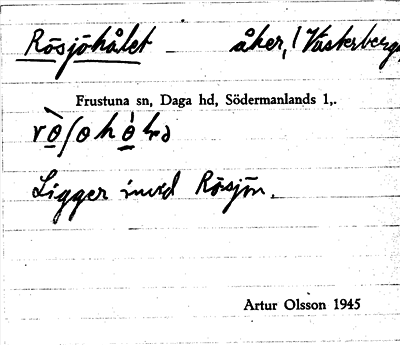 Rösjöhålet åker, Västerberga
Frustuna sn, Daga hd, Södermanlands l,.
Ligger invid Rösjön.
Artur Olsson 1945